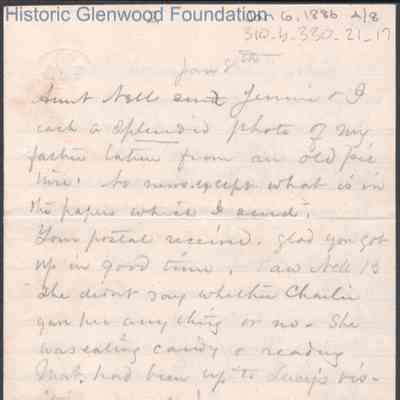 Historic Glenwood Foundation
Jan 6, 1886 A/8
310-4-330-21-17
Jan 8th
Aunt Nell and Jennie & I
each a splendid photo of my
father taken from an old pic
ture. No news except what is in
the papers which I send.
Your postal received. glad you got
up in good time. Saw Nell B
She didnt say whether Charlie
gave her any thing or no. She
was eating candy & reading
had been up to Lucy's vis-